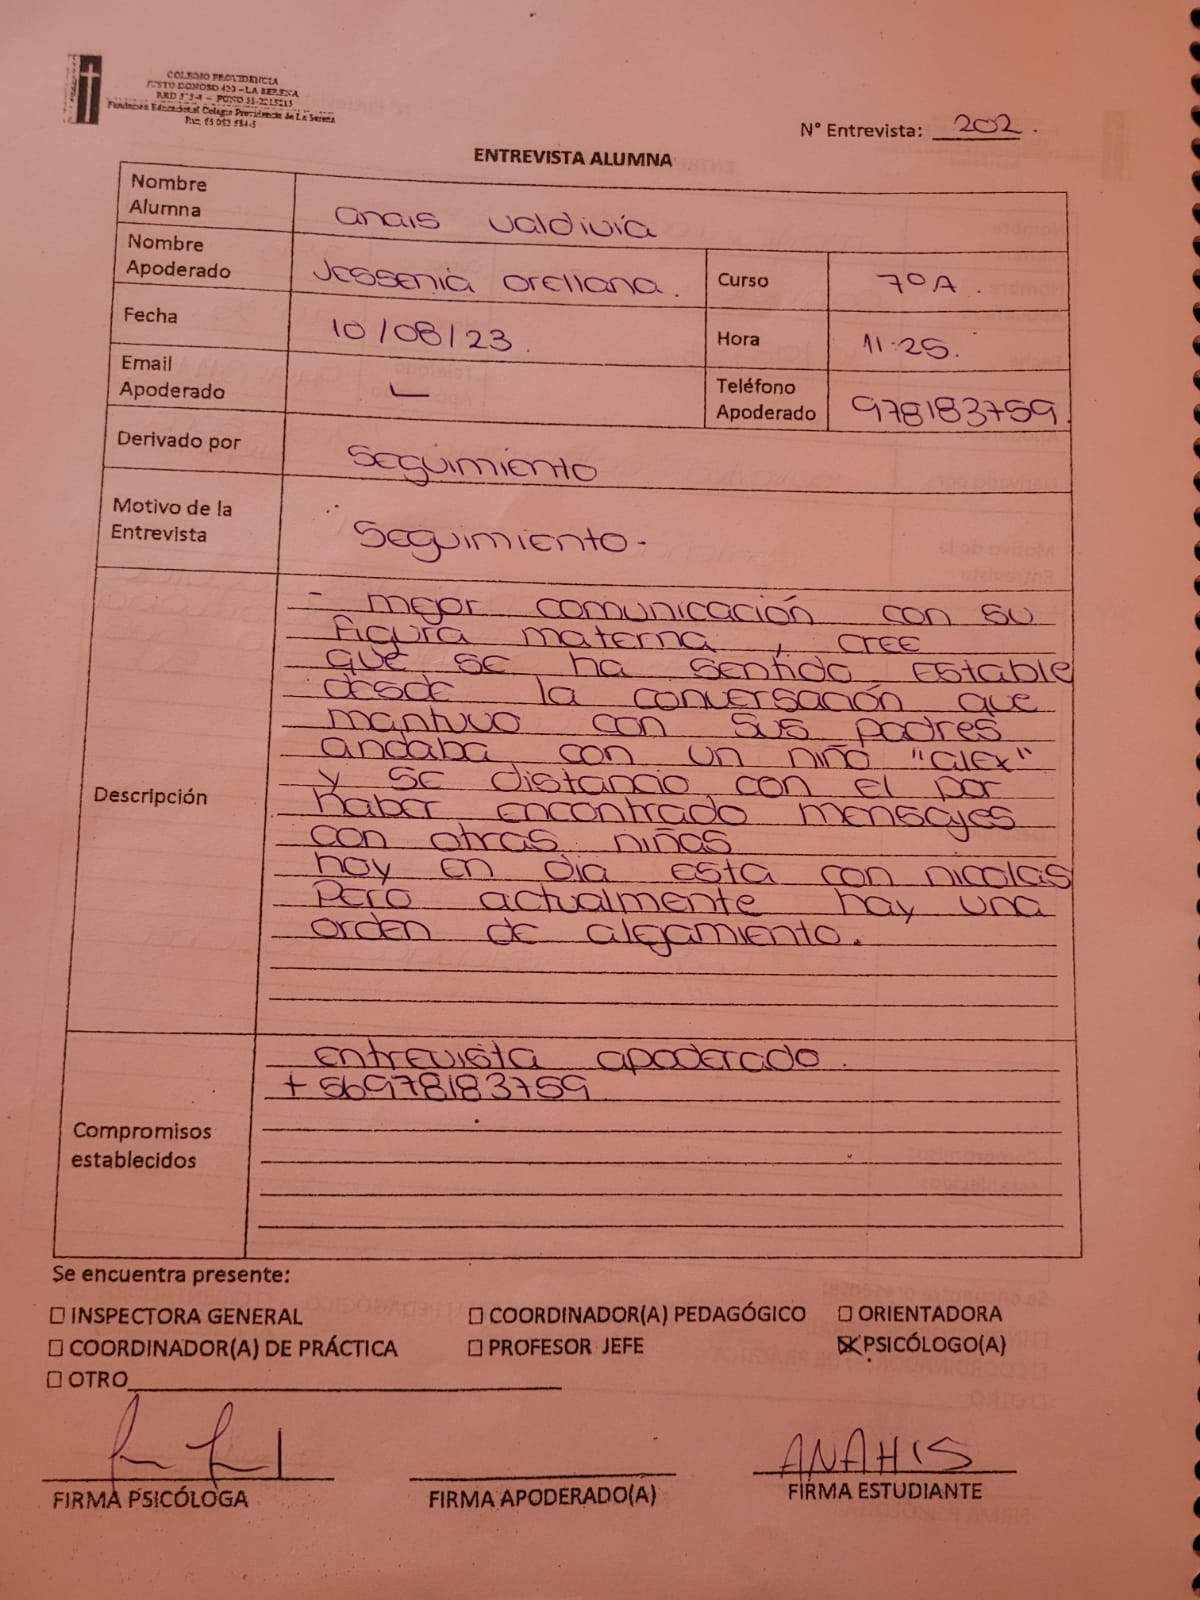 COLEGIO PROVIDENCIA
JUSTO DONOSO 420 – LA SERENA
Fundación Educacional Colegio Providencia de La Serena
N° Entrevista: 202.
ENTREVISTA ALUMNA
Nombre Alumna
anais valdivia
Nombre Apoderado
Jessenia orellana.
Curso
7°A.
Fecha
10/08/23.
Hora
11:25.
Email Apoderado
Teléfono Apoderado
978183759.
Derivado por
seguimiento
Motivo de la Entrevista
seguimiento.
Descripción
- mejor comunicación con su
figura materna, cree
que se ha sentido estable
desde la conversación que
mantuvo con sus padres
andaba con un niño "alex"
y se distancio con el por
haber encontrado mensajes
con otras niñas
hoy en dia esta con nicolas
pero actualmente hay una
orden de alejamiento.
Compromisos establecidos
entrevista apoderado.
+56978183759
Se encuentra presente:
☐ INSPECTORA GENERAL ☐ COORDINADOR(A) PEDAGÓGICO ☐ ORIENTADORA
☐ COORDINADOR(A) DE PRÁCTICA ☐ PROFESOR JEFE ☒ PSICÓLOGO(A)
☐ OTRO
ANAHIS
FIRMA PSICÓLOGA FIRMA APODERADO(A) FIRMA ESTUDIANTE